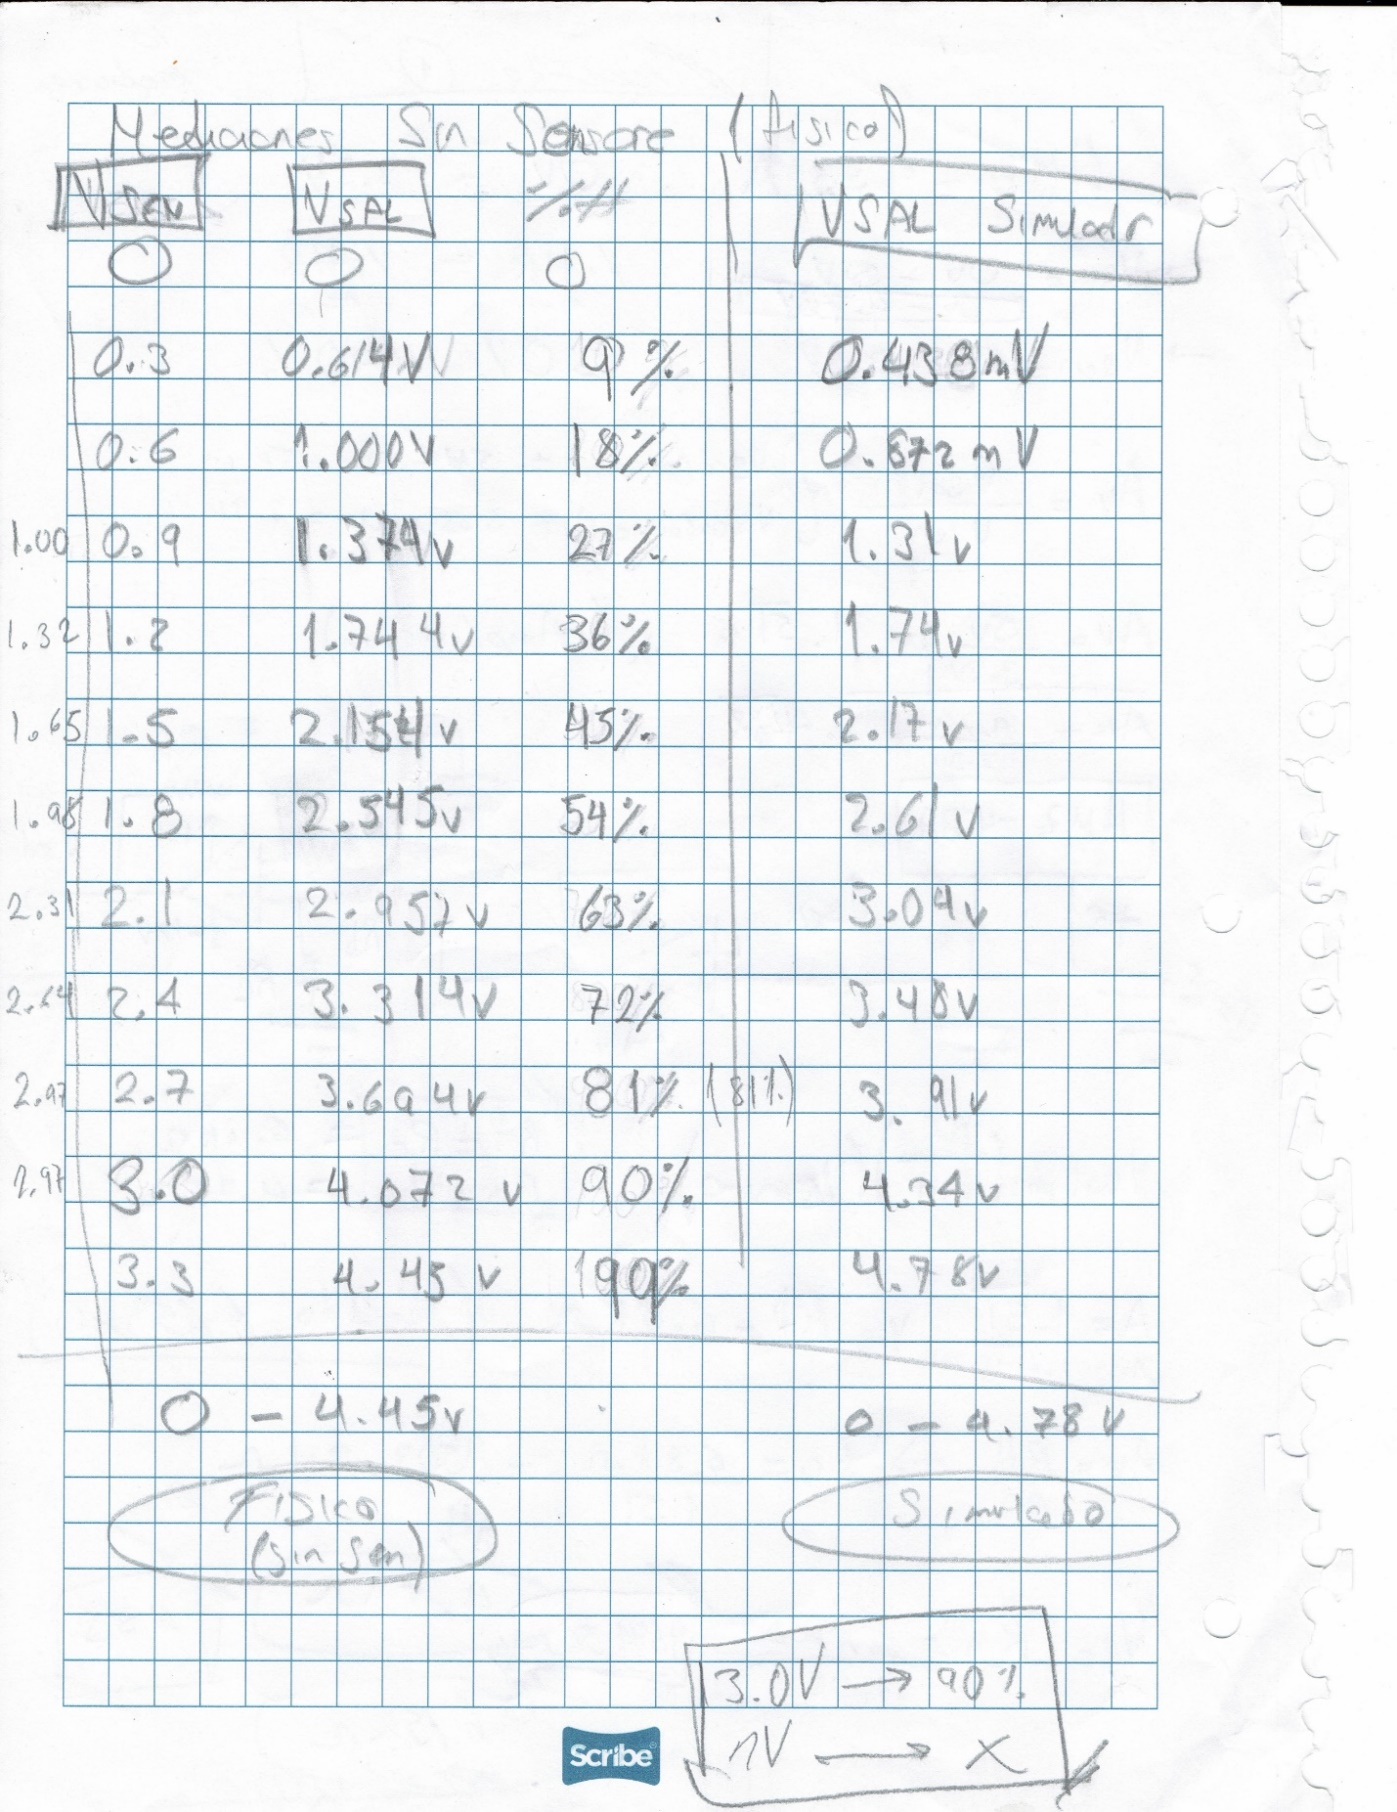 Mediciones Sin Sensore (fisico)
VSEN VSAL %H VSAL Simulador
0 0 0
0.3 0.614V 9% 0.438mV
0.6 1.000V 18% 0.872mV
1.00 0.9 1.374v 27% 1.31v
1.32 1.2 1.744v 36% 1.74v
1.65 1.5 2.154v 45% 2.17v
1.98 1.8 2.545v 54% 2.61v
2.31 2.1 2.957v 63% 3.04v
2.64 2.4 3.314v 72% 3.48v
2.97 2.7 3.694v 81% (81%) 3.91v
2.97 3.0 4.072v 90% 4.34v
3.3 4.45v 4.78v
0 - 4.45v 0 - 4.78v
Fisico Simulado
(sin sen)
3.0V → 90%
nV → X
Scribe